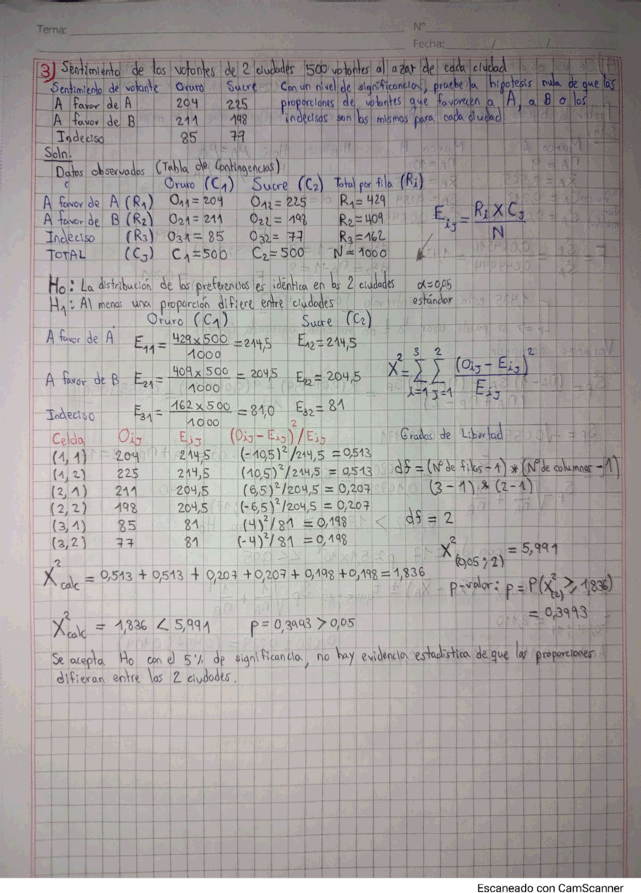 Tema:
N°
Fecha: / /
3) Sentimiento de los votantes de 2 ciudades 500 votantes al azar de cada ciudad
Sentimiento de votante Oruro Sucre
A favor de A 204 225
A favor de B 211 198
Indeciso 85 77
Con un nivel de significancia, pruebe la hipotesis nula de que las
proporciones de votantes que favorecen a A, a B o los
indecisos son las mismas para cada ciudad
Soln.
Datos observados (Tabla de Contingencias)
Oruro (C1) Sucre (C2) Total por fila (Ri)
A favor de A (R1) O11=204 O12=225 R1=429
A favor de B (R2) O21=211 O22=198 R2=409
Indeciso (R3) O31=85 O32=77 R3=162
TOTAL (CJ) C1=500 C2=500 N=1000
EiJ = Ri X CJ / N
H0: La distribución de las preferencias es identica en las 2 ciudades α=0,05
H1: Al menos una proporción difiere entre ciudades estándar
Oruro (C1) Sucre (C2)
A favor de A E11 = 429 x 500 / 1000 = 214,5 E12 = 214,5
A favor de B E21 = 409 x 500 / 1000 = 204,5 E22 = 204,5
Indeciso E31 = 162 x 500 / 1000 = 81,0 E32 = 81
X² = Σ i=1 3 Σ J=1 2 (OiJ - EiJ)² / EiJ
Celda OiJ EiJ (OiJ - EiJ)²/EiJ
(1,1) 204 214,5 (-10,5)²/214,5 = 0,513
(1,2) 225 214,5 (10,5)²/214,5 = 0,513
(2,1) 211 204,5 (6,5)²/204,5 = 0,207
(2,2) 198 204,5 (-6,5)²/204,5 = 0,207
(3,1) 85 81 (4)²/81 = 0,198
(3,2) 77 81 (-4)²/81 = 0,198
Grados de Libertad
df = (N° de filas - 1) * (N° de columnas - 1)
(3-1) * (2-1)
df = 2
X²(0,05; 2) = 5,991
X²calc = 0,513 + 0,513 + 0,207 + 0,207 + 0,198 + 0,198 = 1,836
p-valor: p = P(X²(2) ≥ 1,836)
= 0,3993
X²calc = 1,836 < 5,991 p = 0,3993 > 0,05
Se acepta Ho con el 5% de significancia, no hay evidencia estadistica de que las proporciones
difieran entre las 2 ciudades.
Escaneado con CamScanner